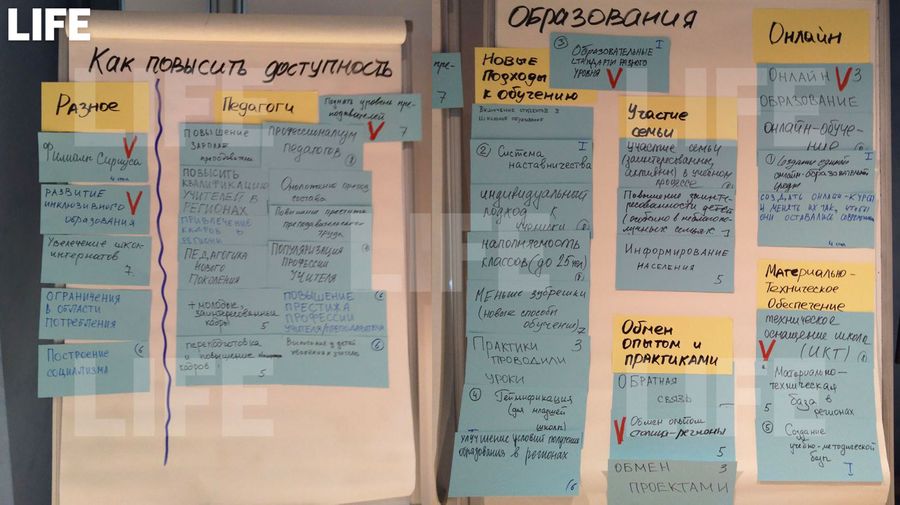 LIFE
Как повысить доступность
образования
Разное
Филиал Сириуса
4
Развитие
инклюзивного
образования
Увеличение школ-
интернатов
7
Ограничения
в области
потребления
Построение
социализма
6
Педагоги
Поднять уровень пре-
подавателей
7
Повышение
зарплат
Повысить
квалификацию
учителей в
регионах
Привлечение
кадров в
регионы
Педагогика
нового
поколения
+ молодые,
заинтересованные
кадры
5
переподготовка
и повышение
кадров
5
Профессионализм
педагогов
Омоложение
состава
Повышение престижа
преподавательского
труда
Популяризация
профессии
учителя
Повышение
престижа
профессии
учителя/преподавателя
6
6
пре-
7
Новые
подходы
к обучению
3 Образовательные I
стандарты разного
уровня
2 Система I
наставничества
индивидуальный
подход к
ученику
наполняемость
классов (до 25 чел)
Меньше зубрёжки
(новые способы
обучения) 7
Практики 3
проводили
уроки
4 Геймификация
(для младшей
школы)
Улучшение условий получения
образования в регионах
6
Участие
семьи
участие семьи
в учебном
процессе
Повышение заинте-
ресованности детей
(особенно в неблагопо-
лучных семьях)
Информирование
населения
5
Обмен
опытом и
практиками
Обратная
связь
Обмен опытом
столица-регионы
5
Обмен 3
проектами
Онлайн
Онлайн 3
образование
онлайн-обуче-
ние
1 Создание единой I
онлайн-образовательной
среды
Создать онлайн-курсы
и менять их так, чтобы
они оставались современными
4
Материально-
Техническое
Обеспечение
техническое
оснащение школ
(ИКТ)
Материально-
техническая
база в
регионах
5
5 Создание
учебно-методической
базы
I